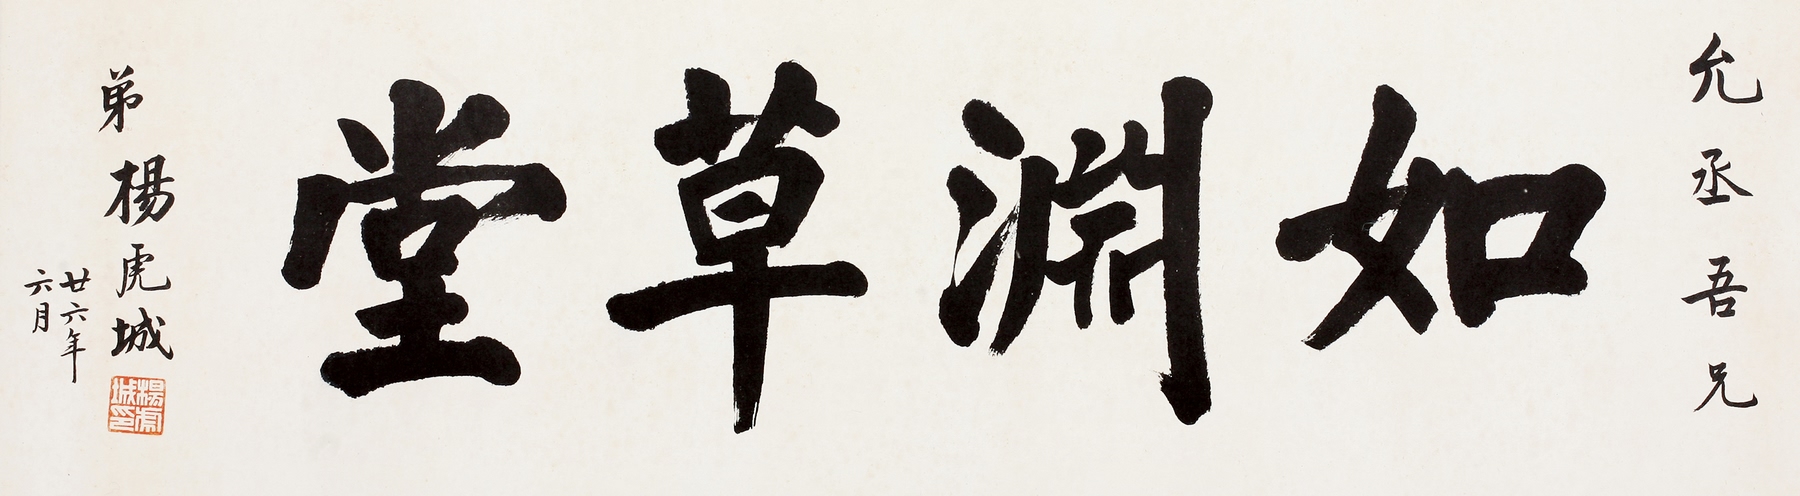 允丞吾兄
如淵草堂
弟楊虎城
廿六年
六月
楊虎城印